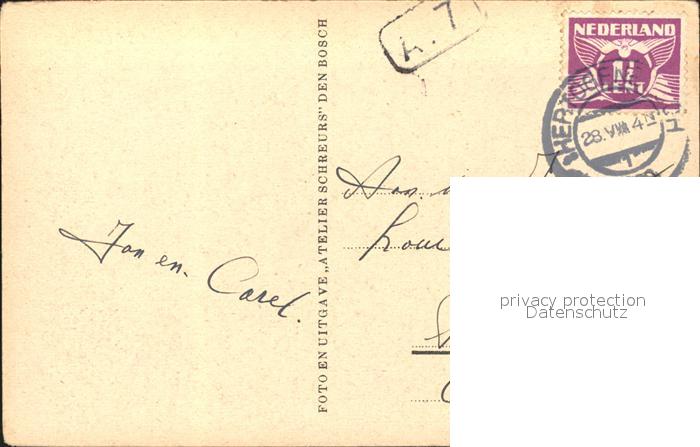 A.7
NEDERLAND
1½
CENT
'S HERTOGENBOSCH
28.VIII 4
1
FOTO EN UITGAVE „ATELIER SCHREURS" DEN BOSCH
Aan
Jan en Carel.
privacy protection
Datenschutz